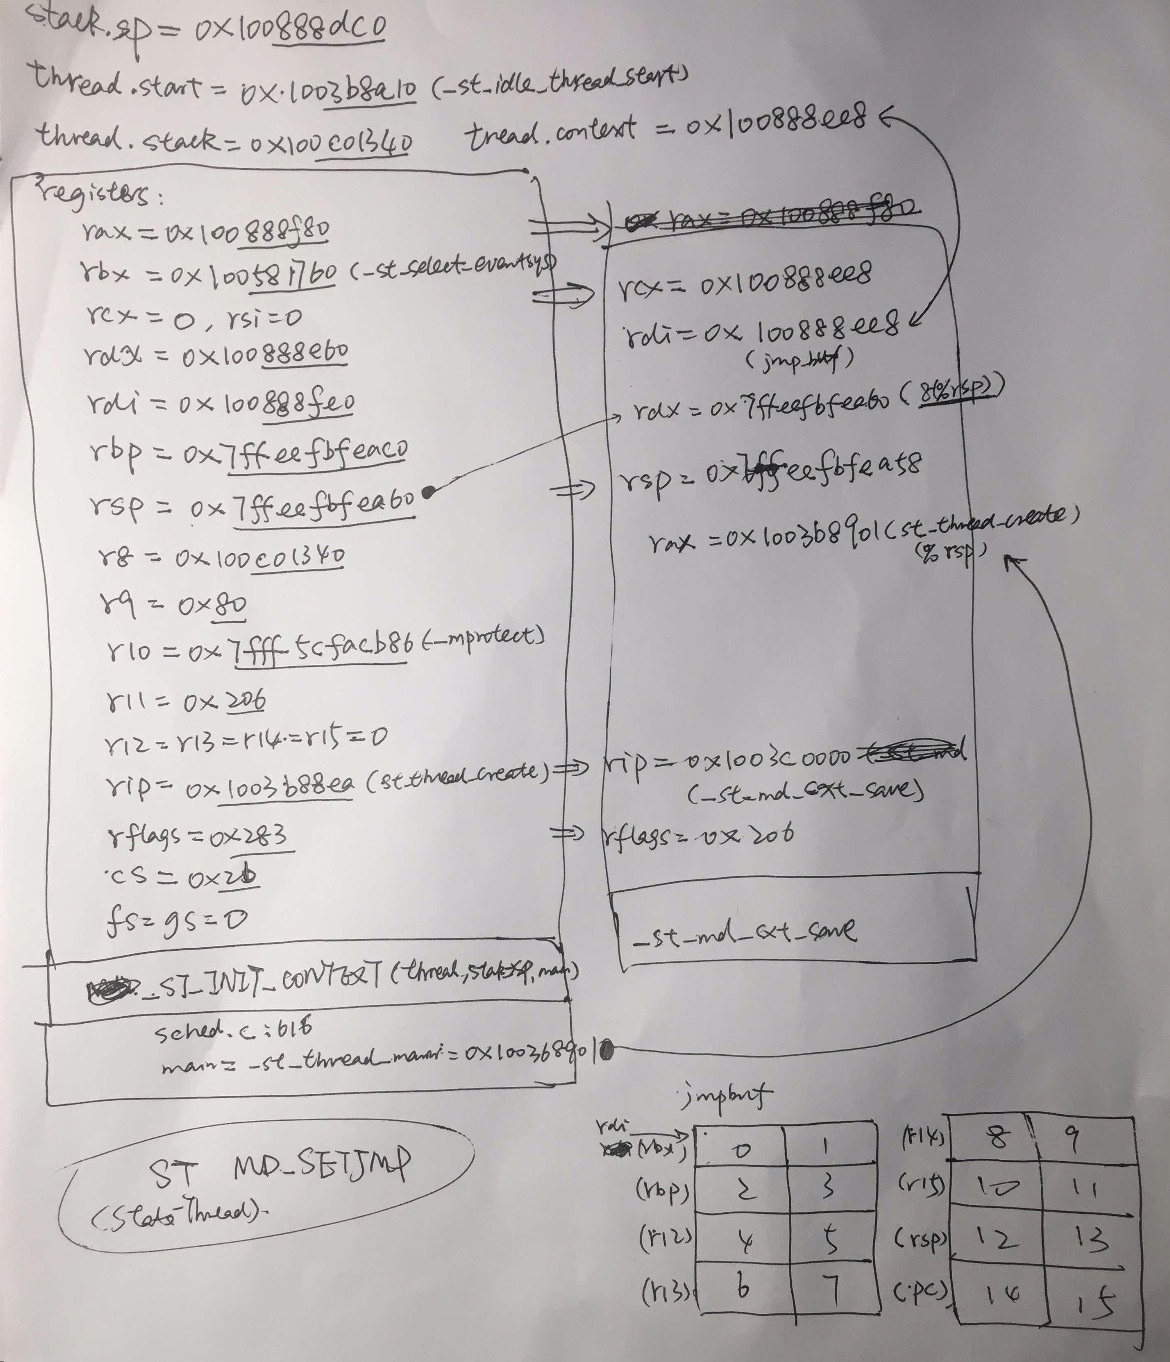 stack.sp = 0x100888dc0
thread.start = 0x.1003b8a10 (_st_idle_thread_start)
thread.stack = 0x100c01340 tread.context = 0x100888ee8
registers:
rax = 0x100888f80
rbx = 0x100581760 (_st_select_eventsys)
rcx = 0, rsi = 0
rdx = 0x100888e60
rdi = 0x100888fe0
rbp = 0x7ffeefbfeac0
rsp = 0x7ffeefbfea60
r8 = 0x100c01340
r9 = 0x80
r10 = 0x7fff5cfacb86 (_mprotect)
r11 = 0x206
r12 = r13 = r14 = r15 = 0
rip = 0x1003b88ea (st_thread_create)
rflags = 0x283
cs = 0x2b
fs = gs = 0
_ST_INIT_CONTEXT (thread, stack->sp, main)
sched.c:616
main = _st_thread_main = 0x1003b8901
rax = 0x100888f80
rcx = 0x100888ee8
rdi = 0x100888ee8
(jmp_buf)
rdx = 0x7ffeefbfea60 (8(%rsp))
rsp = 0x7ffeefbfea58
rax = 0x1003b8901 (st_thread_create)
(%rsp)
rip = 0x1003c0000
(_st_md_cxt_save)
rflags = 0x206
_st_md_cxt_save
ST MD_SETJMP
(State-Thread).
jmpbuf
rdi
(rbx) 0 1
(rbp) 2 3
(r12) 4 5
(r13) 6 7
(r14) 8 9
(r15) 10 11
(rsp) 12 13
(pc) 14 15